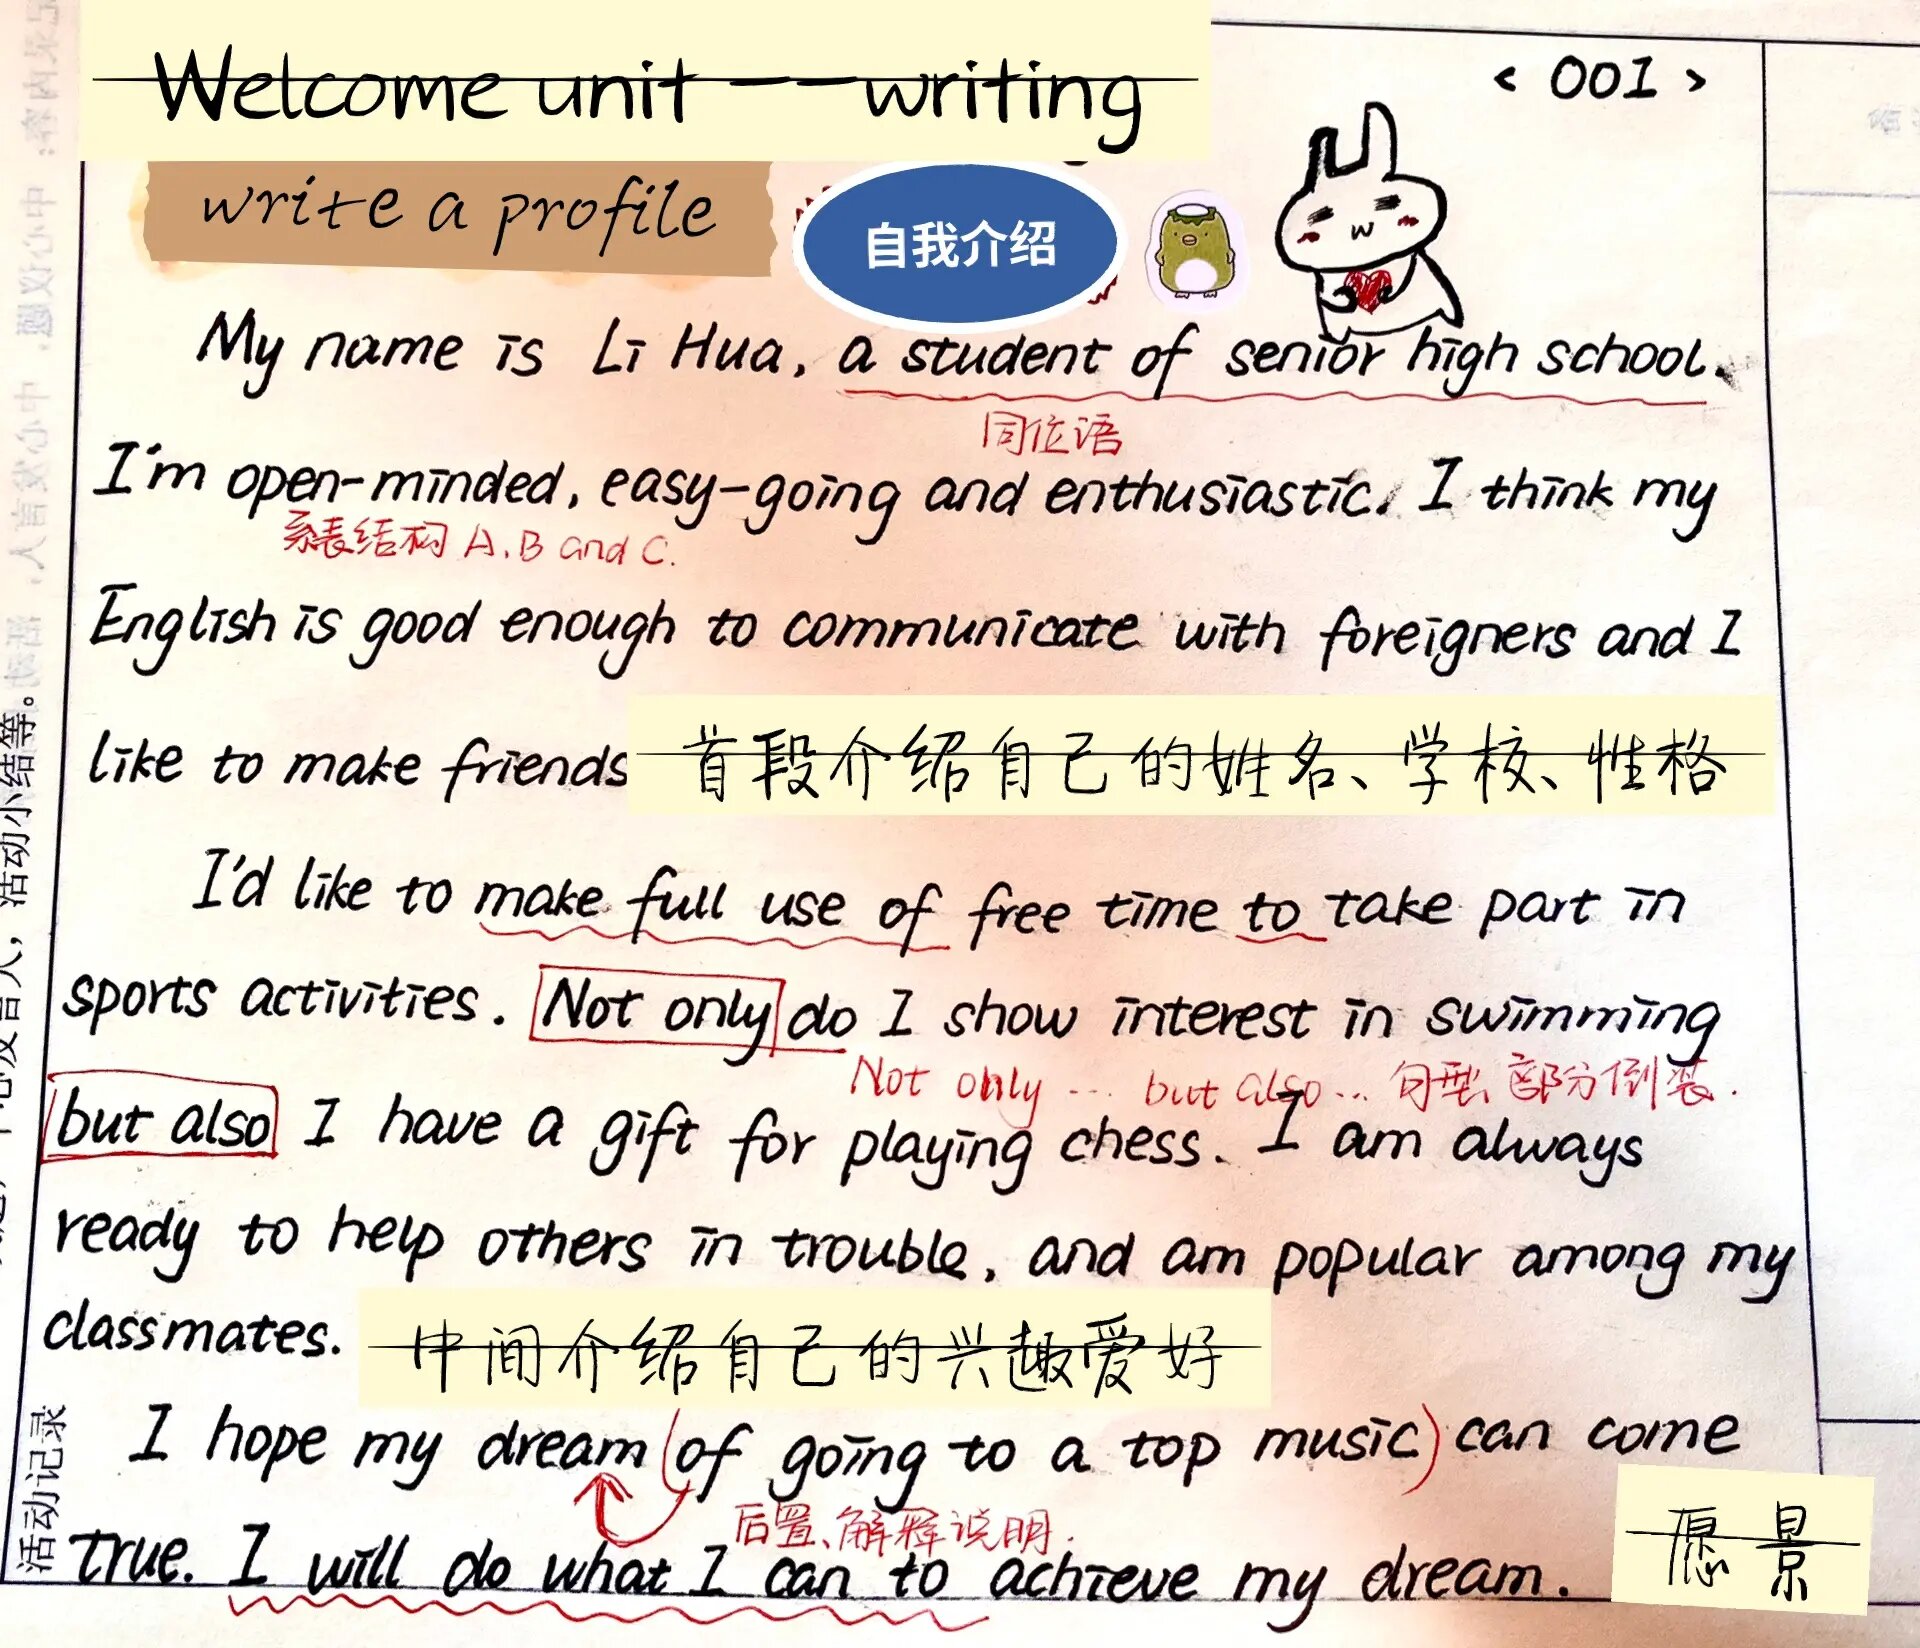 Welcome unit -- writing
< 001 >
write a profile
自我介绍
My name is Li Hua, a student of senior high school.
同位语
I'm open-minded, easy-going and enthusiastic. I think my
系表结构 A, B and C.
English is good enough to communicate with foreigners and I
like to make friends
首段介绍自己的姓名、学校、性格
I'd like to make full use of free time to take part in
sports activities. Not only do I show interest in swimming
Not only ... but also ... 句型, 部分倒装.
but also I have a gift for playing chess. I am always
ready to help others in trouble, and am popular among my
classmates.
中间介绍自己的兴趣爱好
I hope my dream (of going to a top music) can come
后置、解释说明.
true. I will do what I can to achieve my dream.
愿景
活动小结等。
活动记录